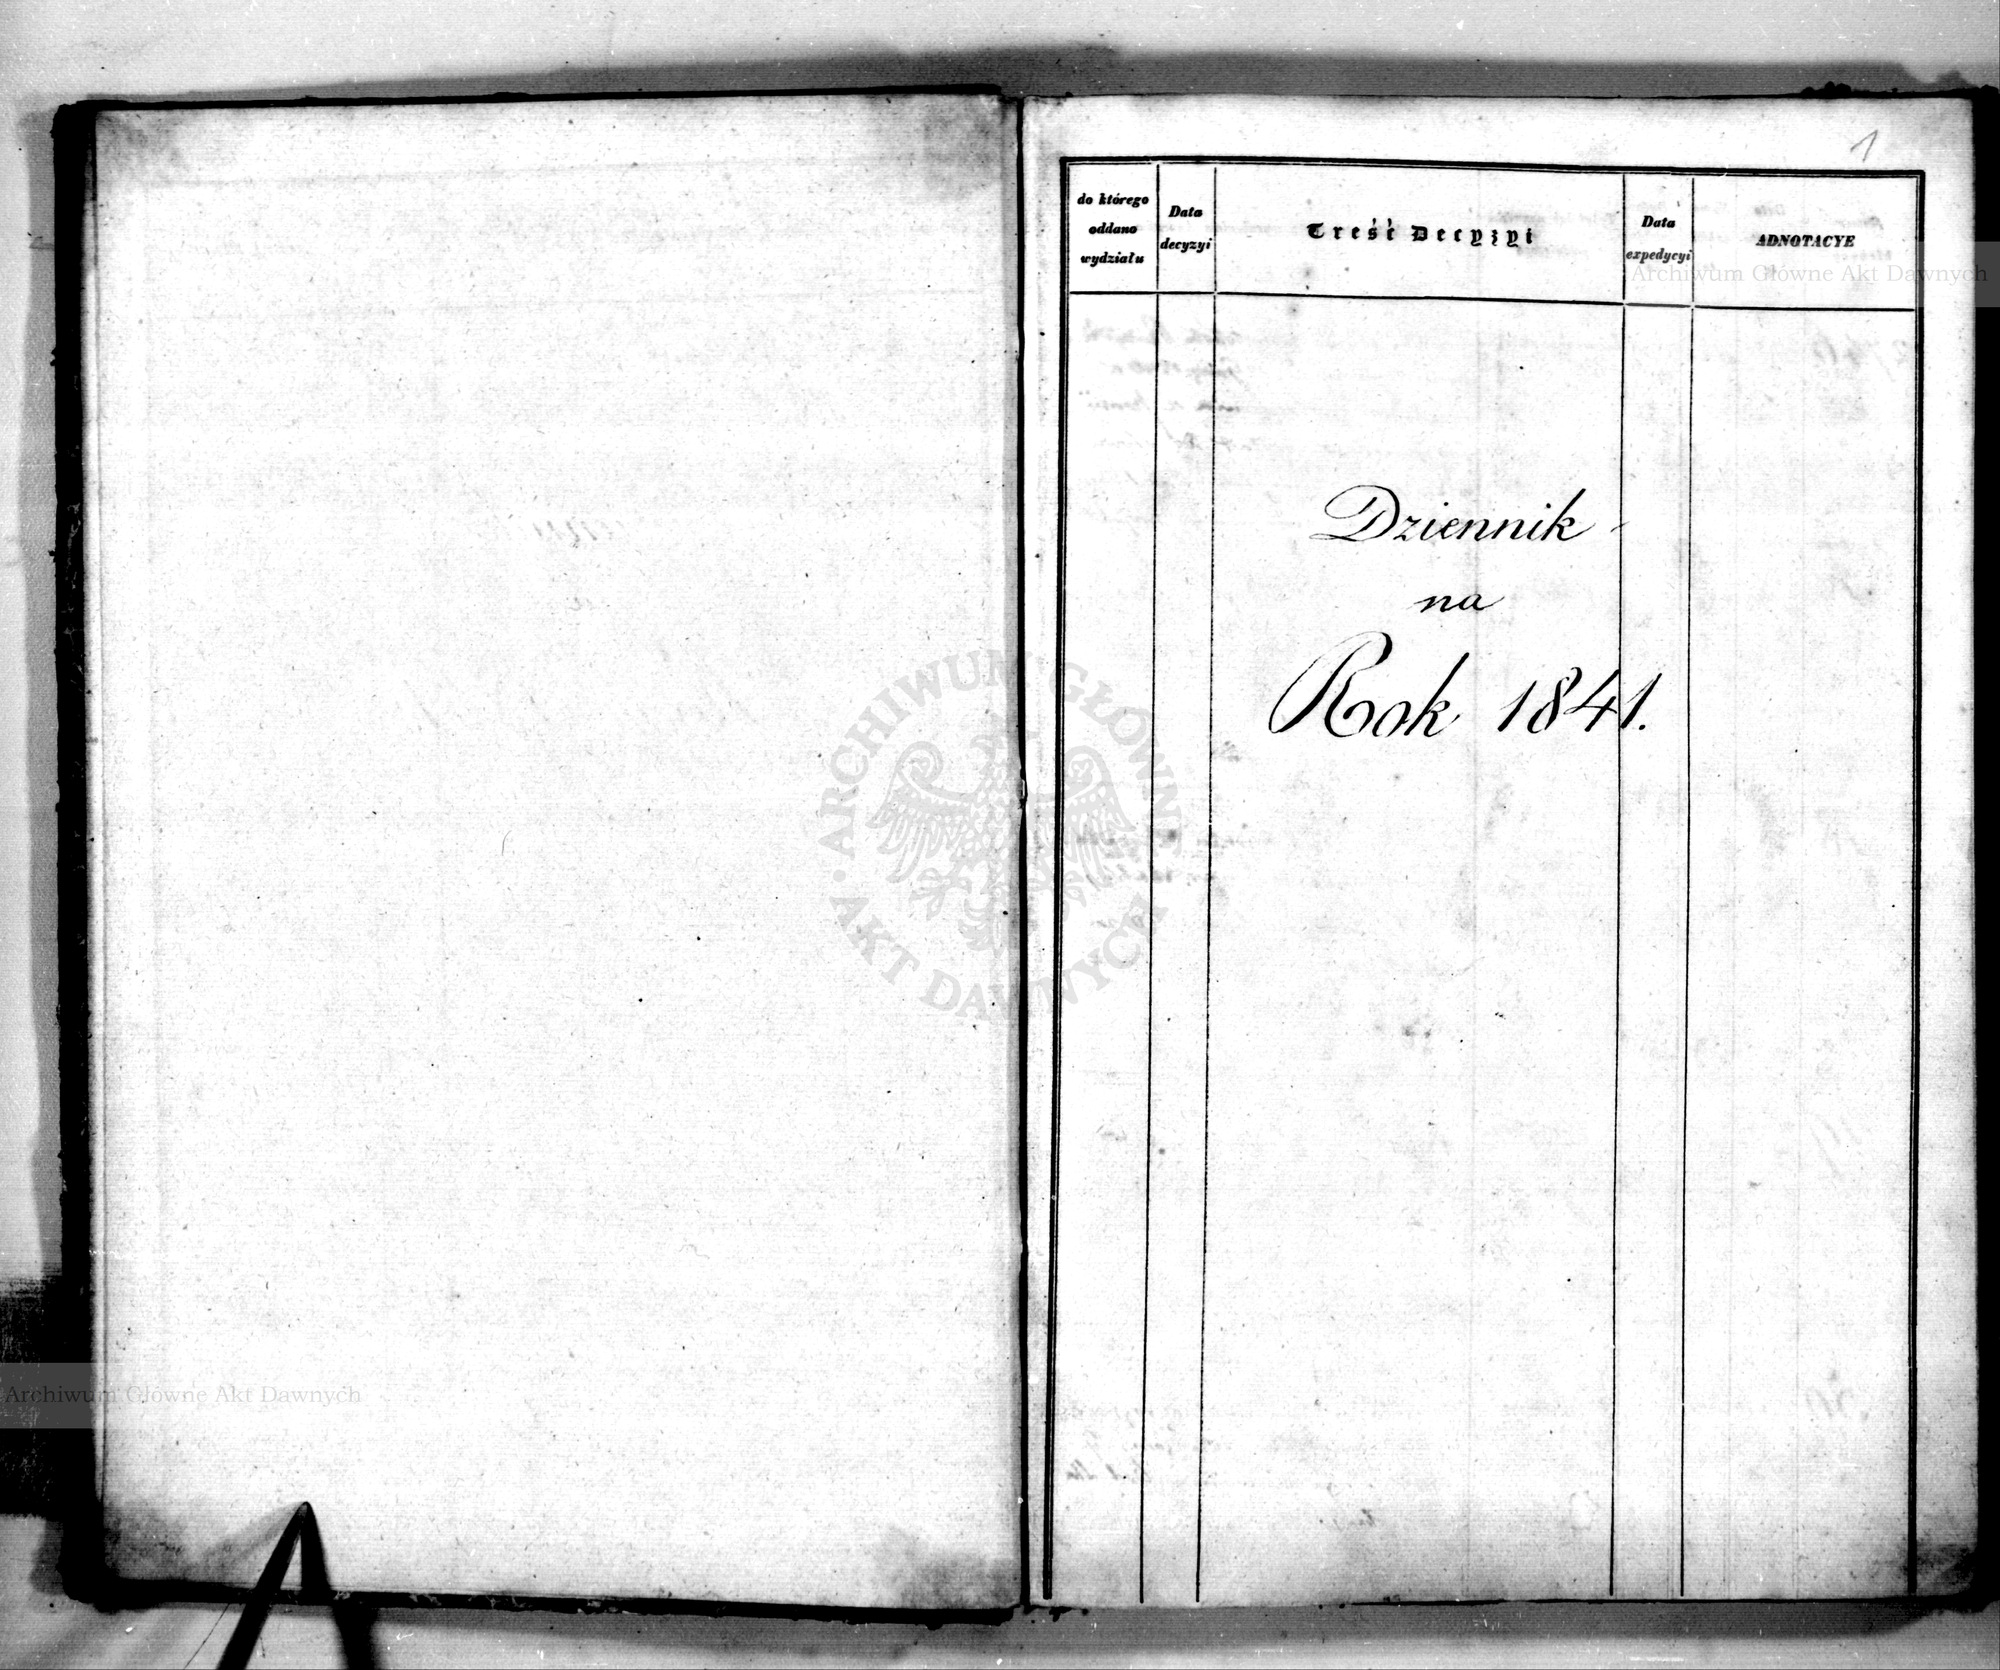 1
do którego
oddano
wydziału
Data
decyzyi
Treść Decyzyi
Data
expedycyi
ADNOTACYE
Archiwum Główne Akt Dawnych
Dziennik
na
Rok 1841.
ARCHIWUM GŁÓWNE
AKT DAWNYCH
Archiwum Główne Akt Dawnych